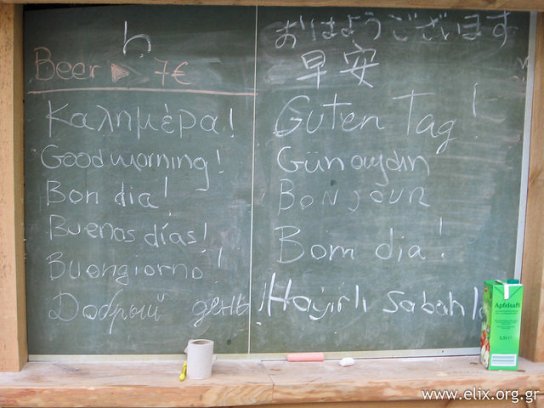 h
Beer ▷ 7€
Καλημέρα!
Good morning!
Bon dia!
Buenas días!
Buongiorno!
Добрый день!
おはようございます
早安
Guten Tag!
Günaydın
Bonjour
Bom dia!
Hayırlı sabahla
Apfelsaft
www.elix.org.gr